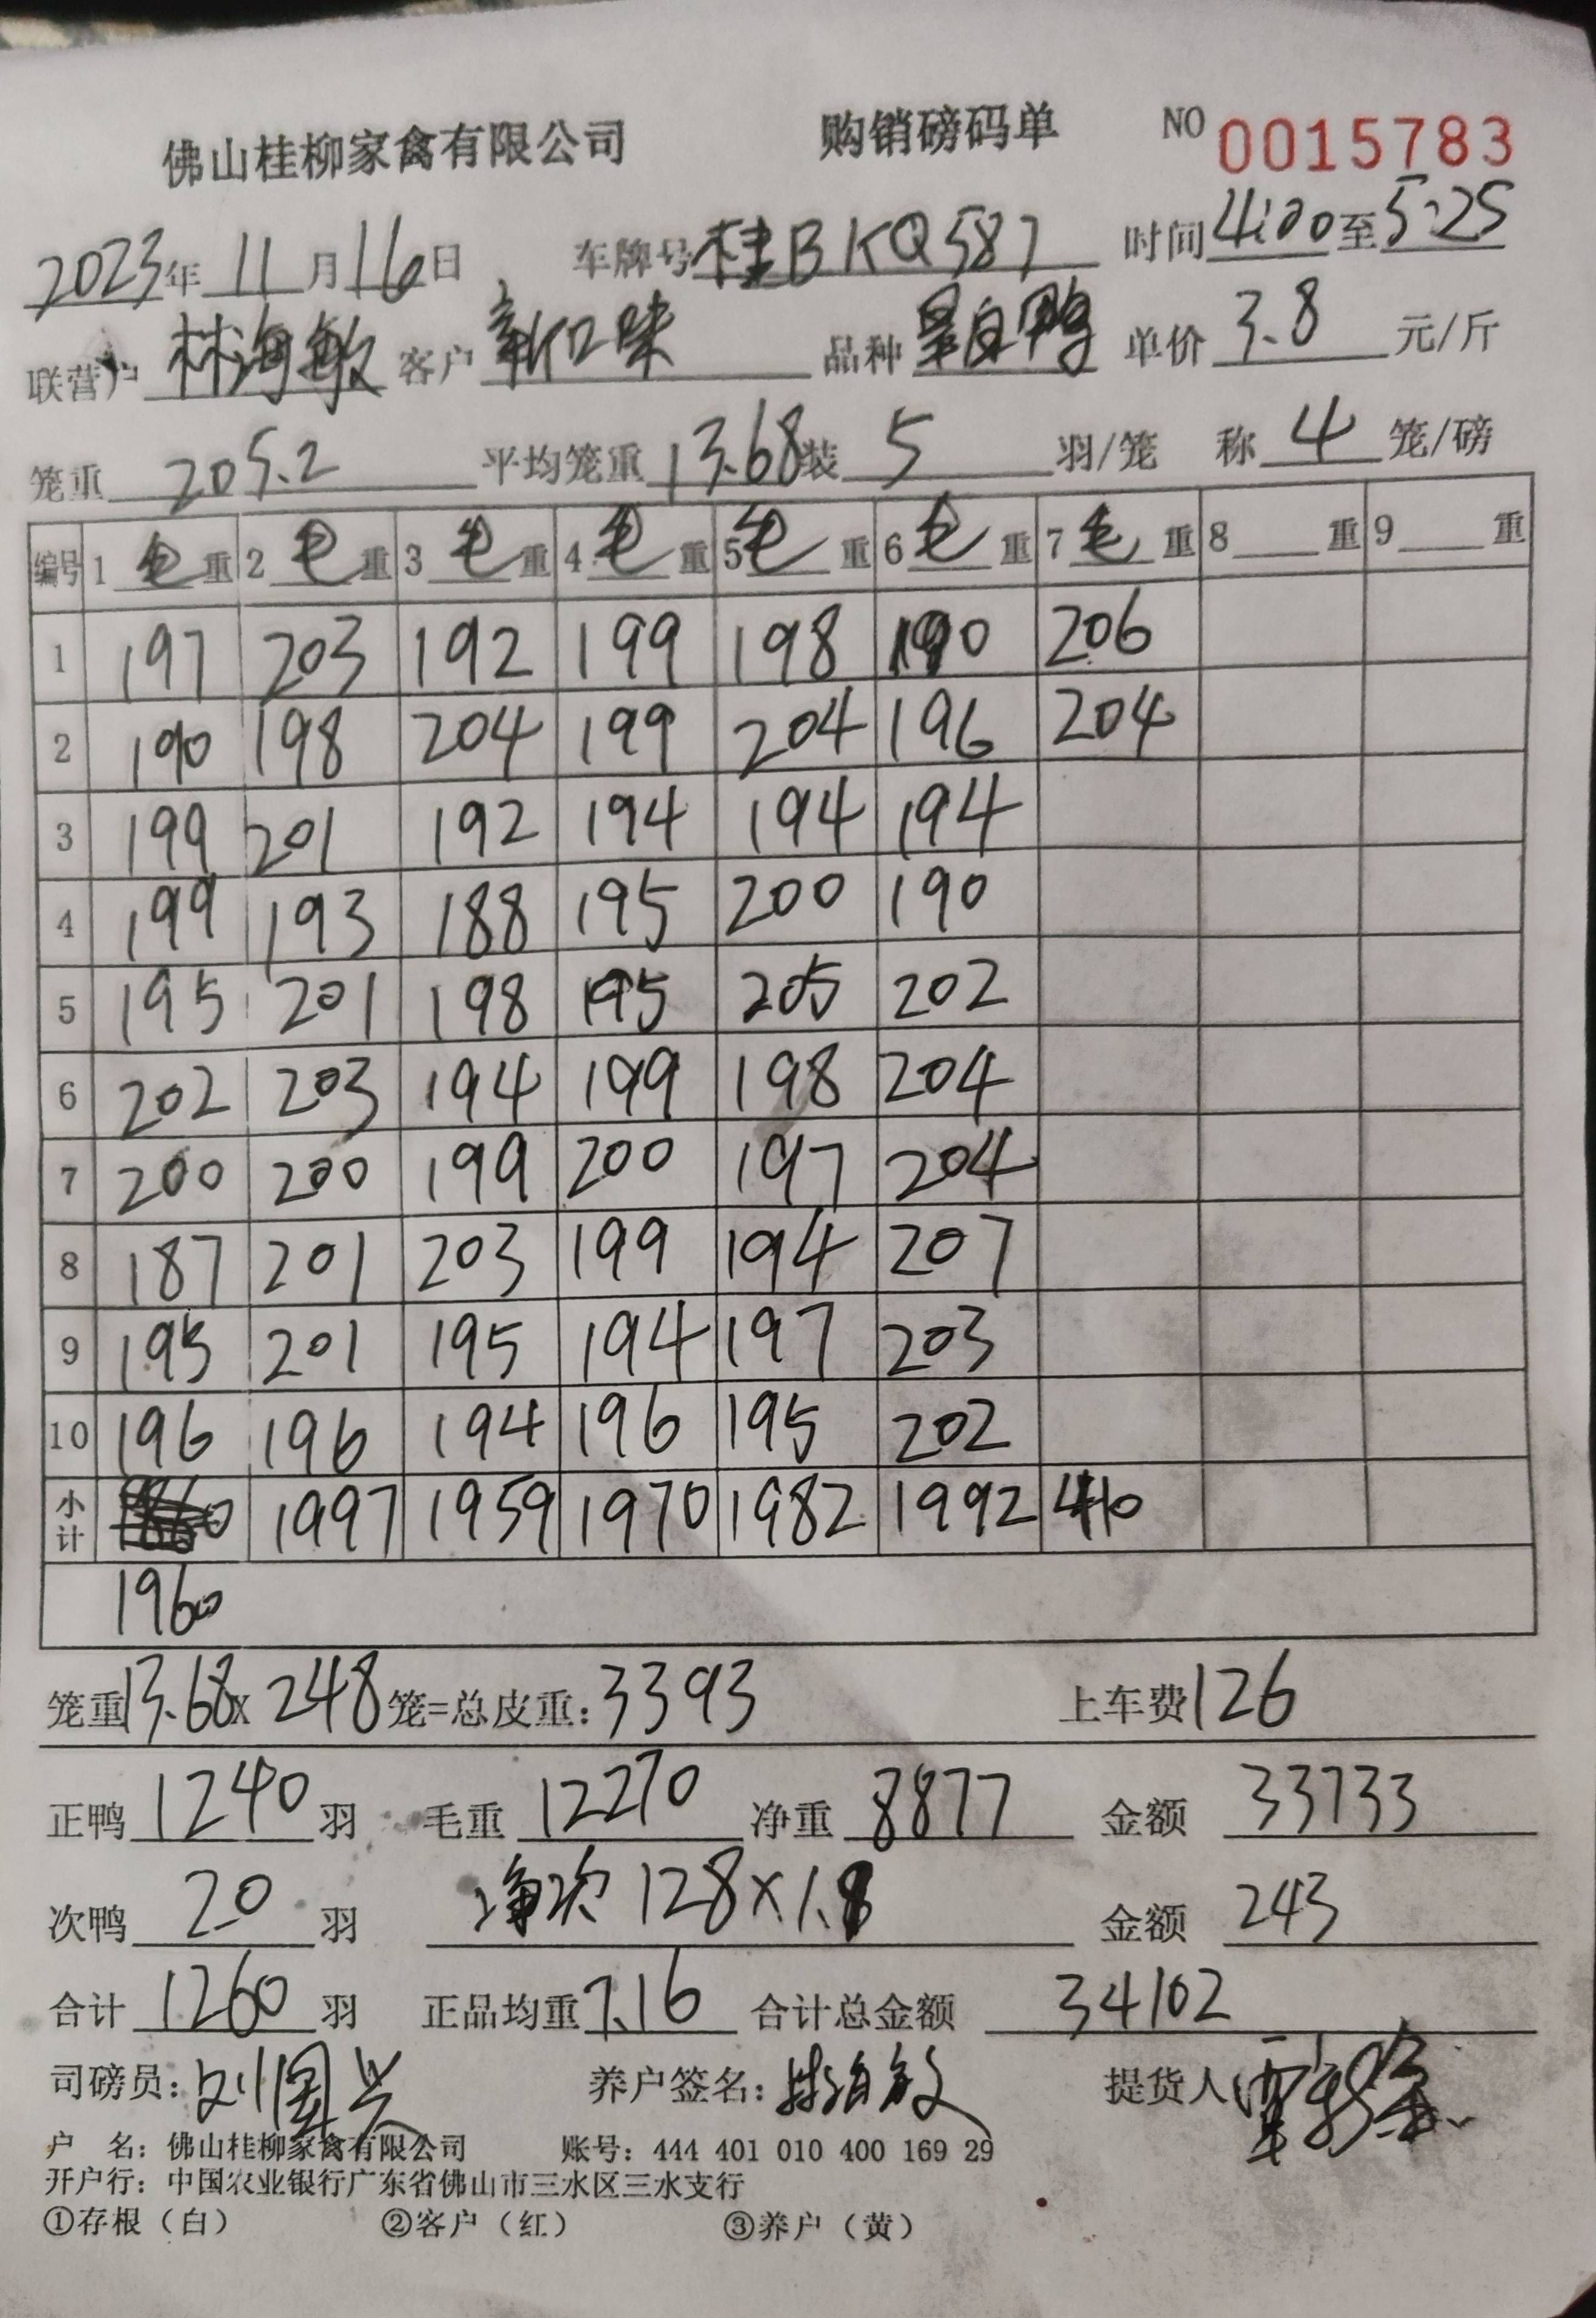 佛山桂柳家禽有限公司 购销磅码单 NO 0015783
2023年 11月16日 车牌号 桂BKQ587 时间 4:00 至 5:25
联营户 林海敏 客户 新口味 品种 鸭 单价 3.8 元/斤
笼重 205.2 平均笼重 13.68 装 5 羽/笼 称 4 笼/磅
编号 1 毛重 2 毛重 3 毛重 4 毛重 5 毛重 6 毛重 7 毛重 8 重 9 重
1 197 203 192 199 198 190 206
2 190 198 204 199 204 196 204
3 199 201 192 194 194 194
4 199 193 188 195 200 190
5 195 201 198 195 205 202
6 202 203 194 199 198 204
7 200 200 199 200 197 204
8 187 201 203 199 194 207
9 195 201 195 194 197 203
10 196 196 194 196 195 202
小计 1997 1959 1970 1982 1992 410
1960
笼重13.68x 248 笼=总皮重: 3393 上车费126
正鸭 1240 羽 毛重 12270 净重 8877 金额 33733
次鸭 20 羽 净次 128×1.9 金额 243
合计 1260 羽 正品均重 7.16 合计总金额 34102
司磅员: 刘国兴 养户签名: 林海敏 提货人
户 名: 佛山桂柳家禽有限公司 账号: 444 401 010 400 169 29
开户行: 中国农业银行广东省佛山市三水区三水支行
①存根（白） ②客户（红） ③养户（黄）